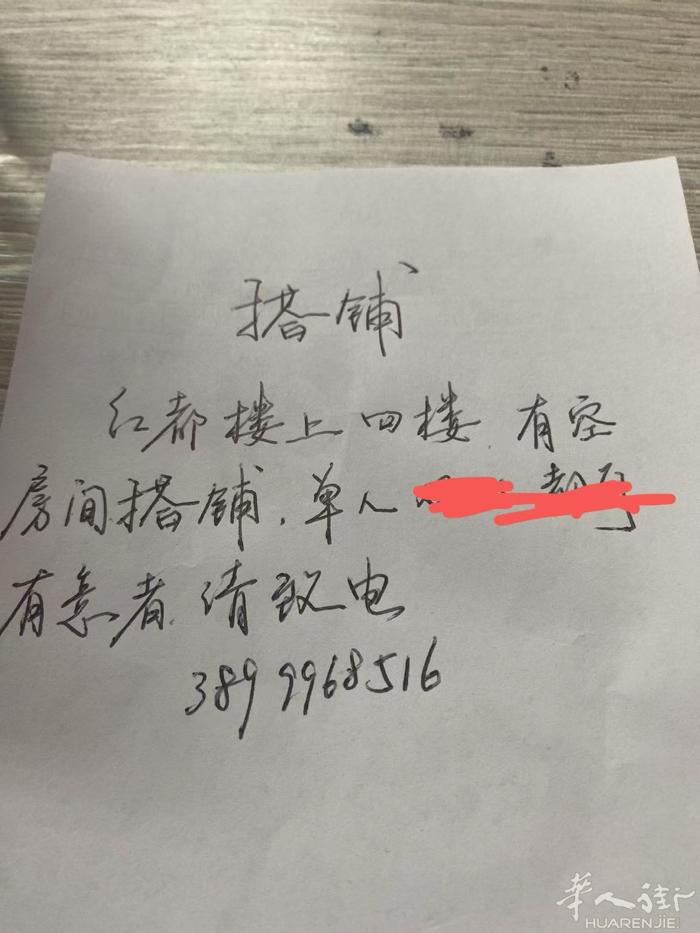 搭铺
红都楼上四楼.有空
房间搭铺.单人
有意者.请致电
3899968516
華人街
HUARENJIE